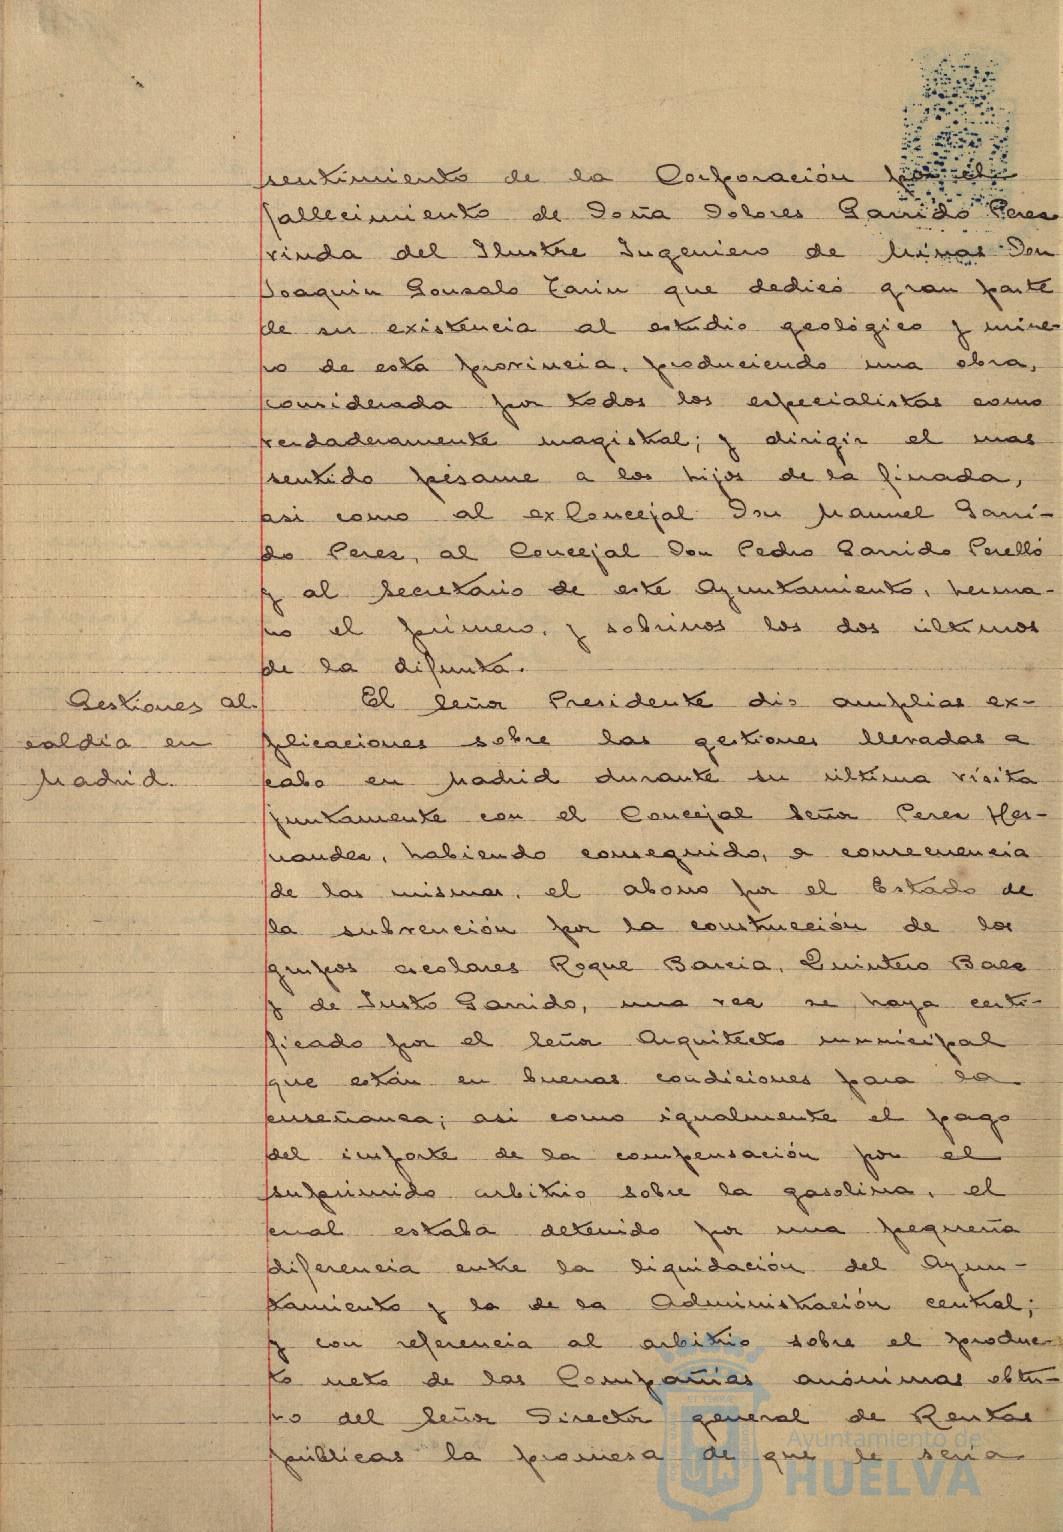 sentimiento de la Corporación por el
fallecimiento de Doña Dolores Garrido Perez
viuda del Ilustre Ingeniero de Minas Don
Joaquin Gonzalo Tarin que dedicó gran parte
de su existencia al estudio geológico y mine-
ro de esta provincia, produciendo una obra,
considerada por todos los especialistas como
verdaderamente magistral; y dirigir el mas
sentido pésame a los hijos de la finada,
asi como al exConcejal Don Manuel Garri-
do Perez, al Concejal Don Pedro Garrido Perelló
y al Secretario de este Ayuntamiento, herma-
no el primero, y sobrinos los dos últimos
de la difunta.
Gestiones al-
caldia en
Madrid.
El Señor Presidente dio amplias ex-
plicaciones sobre las gestiones llevadas a
cabo en Madrid durante su última visita
juntamente con el Concejal Señor Perez Her-
nandez, habiendo conseguido, a consecuencia
de las mismas, el abono por el Estado de
la subvención por la construcción de los
grupos escolares Roque Barcia, Quintero Baez
y de Justo Garrido, una vez se haya certi-
ficado por el Señor Arquitecto municipal
que están en buenas condiciones para la
enseñanza; asi como igualmente el pago
del importe de la compensación por el
suprimido arbitrio sobre la gasolina, el
cual estaba detenido por una pequeña
diferencia entre la liquidación del Ayun-
tamiento y la de la Administración central;
y con referencia al arbitrio sobre el produc-
to neto de las Compañias anónimas obtu-
vo del Señor Director general de Rentas
públicas la promesa de que le seria
Ayuntamiento de
HUELVA